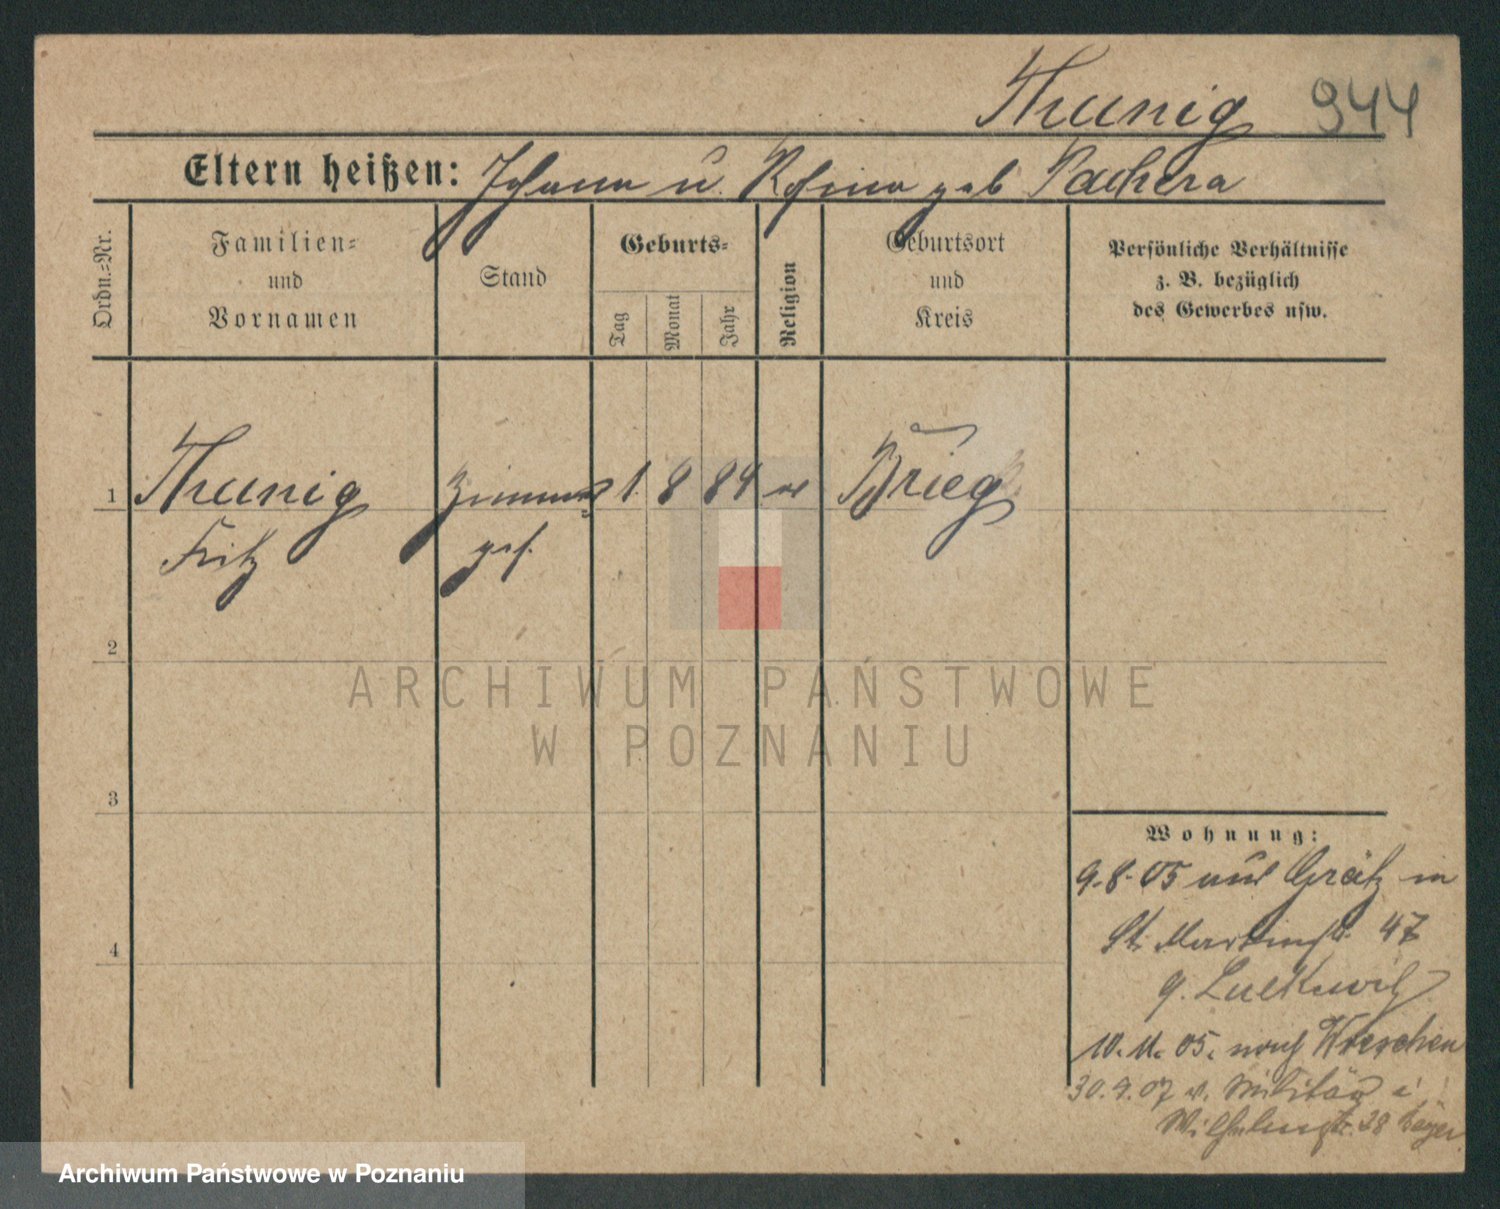 Thunig 944
Eltern heißen: Johann u. Rosina geb Pachera
Ordn.=Nr.
Familien=
und
Vornamen
Stand
Geburts=
Tag
Monat
Jahr
Religion
Geburtsort
und
Kreis
Persönliche Verhältnisse
z. B. bezüglich
des Gewerbes usw.
1 Thunig Zimmer 1. 8 84 ev Brieg
Fritz ges.
2
3
4
Wohnung:
9.8.05 aus Grätz in
St. Martinstr. 47
10.11.05. nach Wreschen
30.9.07 v. Militär i
Wilhelmstr. 28
ARCHIWUM PAŃSTWOWE
W POZNANIU
Archiwum Państwowe w Poznaniu